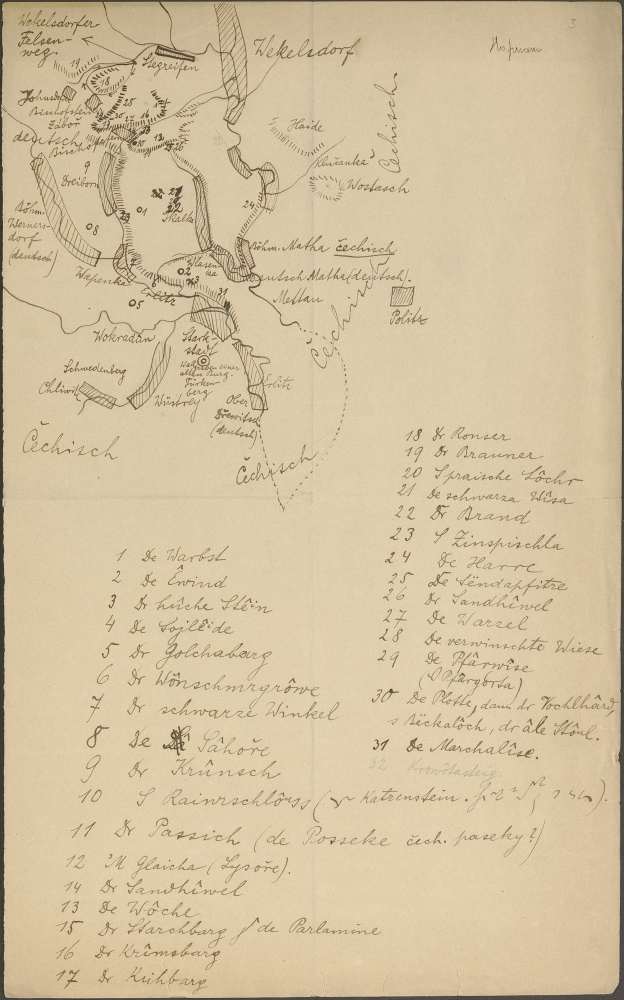 3
Wekelsdorfer
Felsen-
weg.
Stegreifen
Wekelsdorf
Čechisch
Haide
Wostasch
Bischofstein
Zabor
deutsch
Bischofstein
9
Dreiborn
Böhm.
Wernersdorf
(deutsch)
Malka
Böhm. Matha čechisch
Deutsch Matha (deutsch).
Mettau
Čechisch
Politz
Wapenka
Erlitz
Wlasenka
Wokradán
Starkstadt
Schwedenberg
Chliwitz
Wüstrey
Erlitz
Ober
Drewitsch
(deutsch)
Čechisch
Čechisch
1 De Warbst
2 De Êwind
3 Dr hûche Stêin
4 De Sojlêide
5 Dr Golchabarg
6 Dr Wônschmrgrôwe
7 Dr schwarze Winkel
8 De Sâhôre
9 Dr Krûnsch
10 S Rainrschlôss ( Katzenstein.
11 Dr Passich (de Posseke čech. paseky?)
12 'M Glaicha (Lysoře).
14 Dr Sandhîwel
13 De Wôche
15 Dr Starchbarg de Parlamine
16 Dr Krîmsbarg
17 Dr Kuhbarg
18 Dr Ronser
19 Dr Brauner
20 S praische Lôchr
21 De schwarza Wîsa
22 Dr Brand
23 S Zinspischla
24 De Harre
25 De Sêndapfitze
26 Dr Sandhîwel
27 De Warzel
28 De verwinschte Wiese
29 De Pfârwîse
(S Pfârgorta)
30 De Plotte, dann dr Vochlhârd,
s Bêckalôch, dr âle Stôul.
31 De Marchalîse.
32